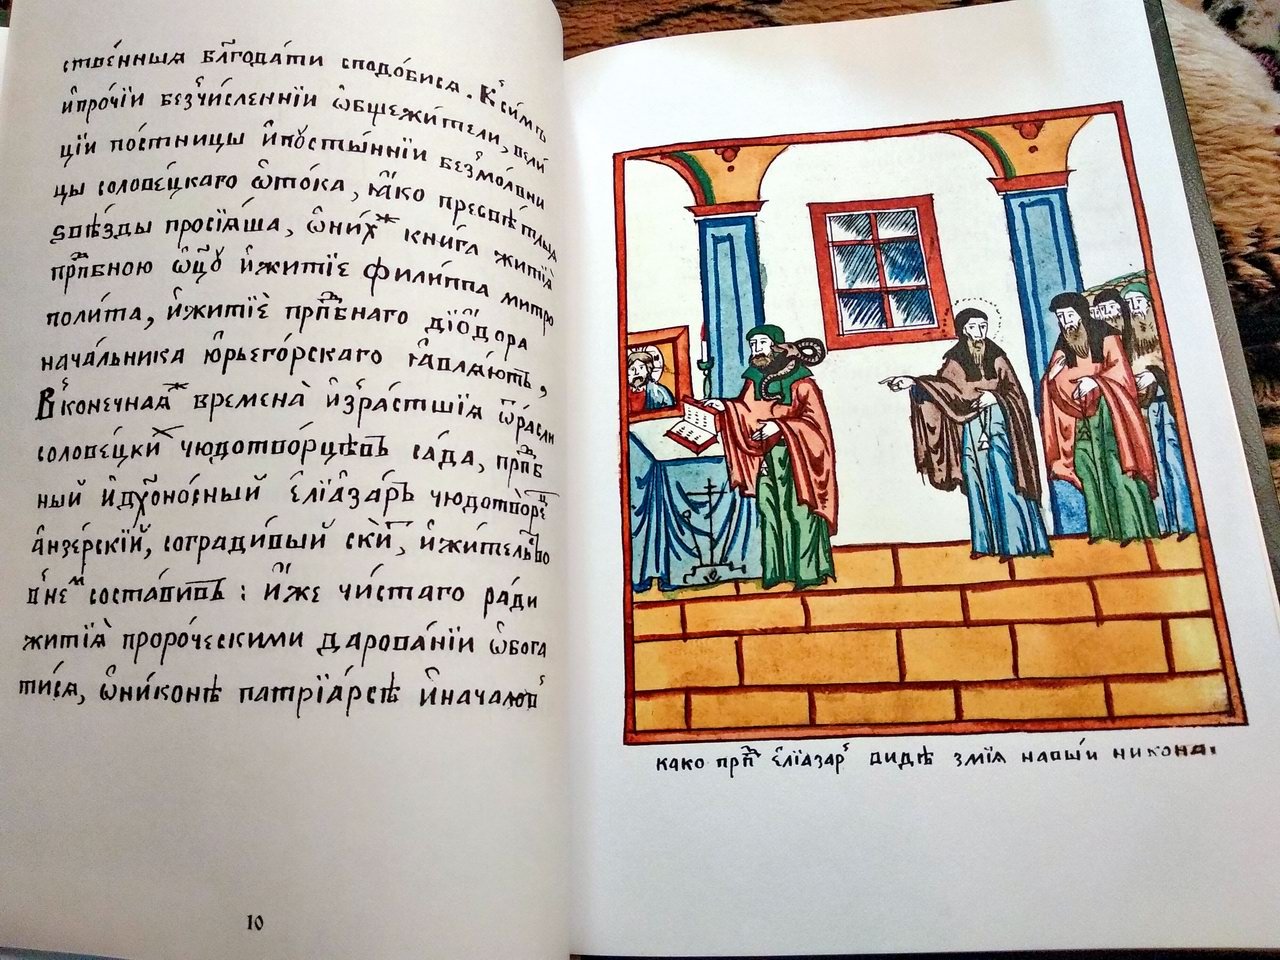 ственныя бл҃года́ти сподо́бися. К си́мъ
и҆про́чїи безчи́сленнїи ѡ҆бщежи́тели, вели́
цїи по́стницы и҆пꙋсты́ннїи безмо́лвни
цы солове́цкаго ѻ҆то́ка, ꙗ҆́ко пресвѣ́тлыя
ѕвѣ́зды просїѧ́ша, ѡ҆ни́хже кни́га житїѧ̀
прⷣпбною ѻ҆ц҃ꙋ и҆житїѐ фили́ппа митро
поли́та, и҆житїѐ прⷣпбнаго дїѻдо́ра
нача́льника ю҆рьего́рскаго ꙗ҆влѧ́ютъ,
В коне́чнаѧже времена̀ и҆зра́стшїѧ ѿра́сли
солове́цкихъ чюдотво́рцѣвъ са́да, прⷣпб
ный и҆дꙋ́хоно́сный є҆лїа҆за́ръ чюдотво́рецъ
а҆нзе́рскїй, согради́вый ски́тъ, и҆жи́тельство
в не́мъ соста́вивъ: и҆́же чи́стаго ра́ди
житїѧ̀ проро́ческими дарова́нїи ѡ҆бога
ти́сѧ, ѡ҆ни́конѣ патрїа́рсѣ и҆нача́лов
10
како прⷣпб є҆лїазаръ видѣ змїѧ навы́и никона.